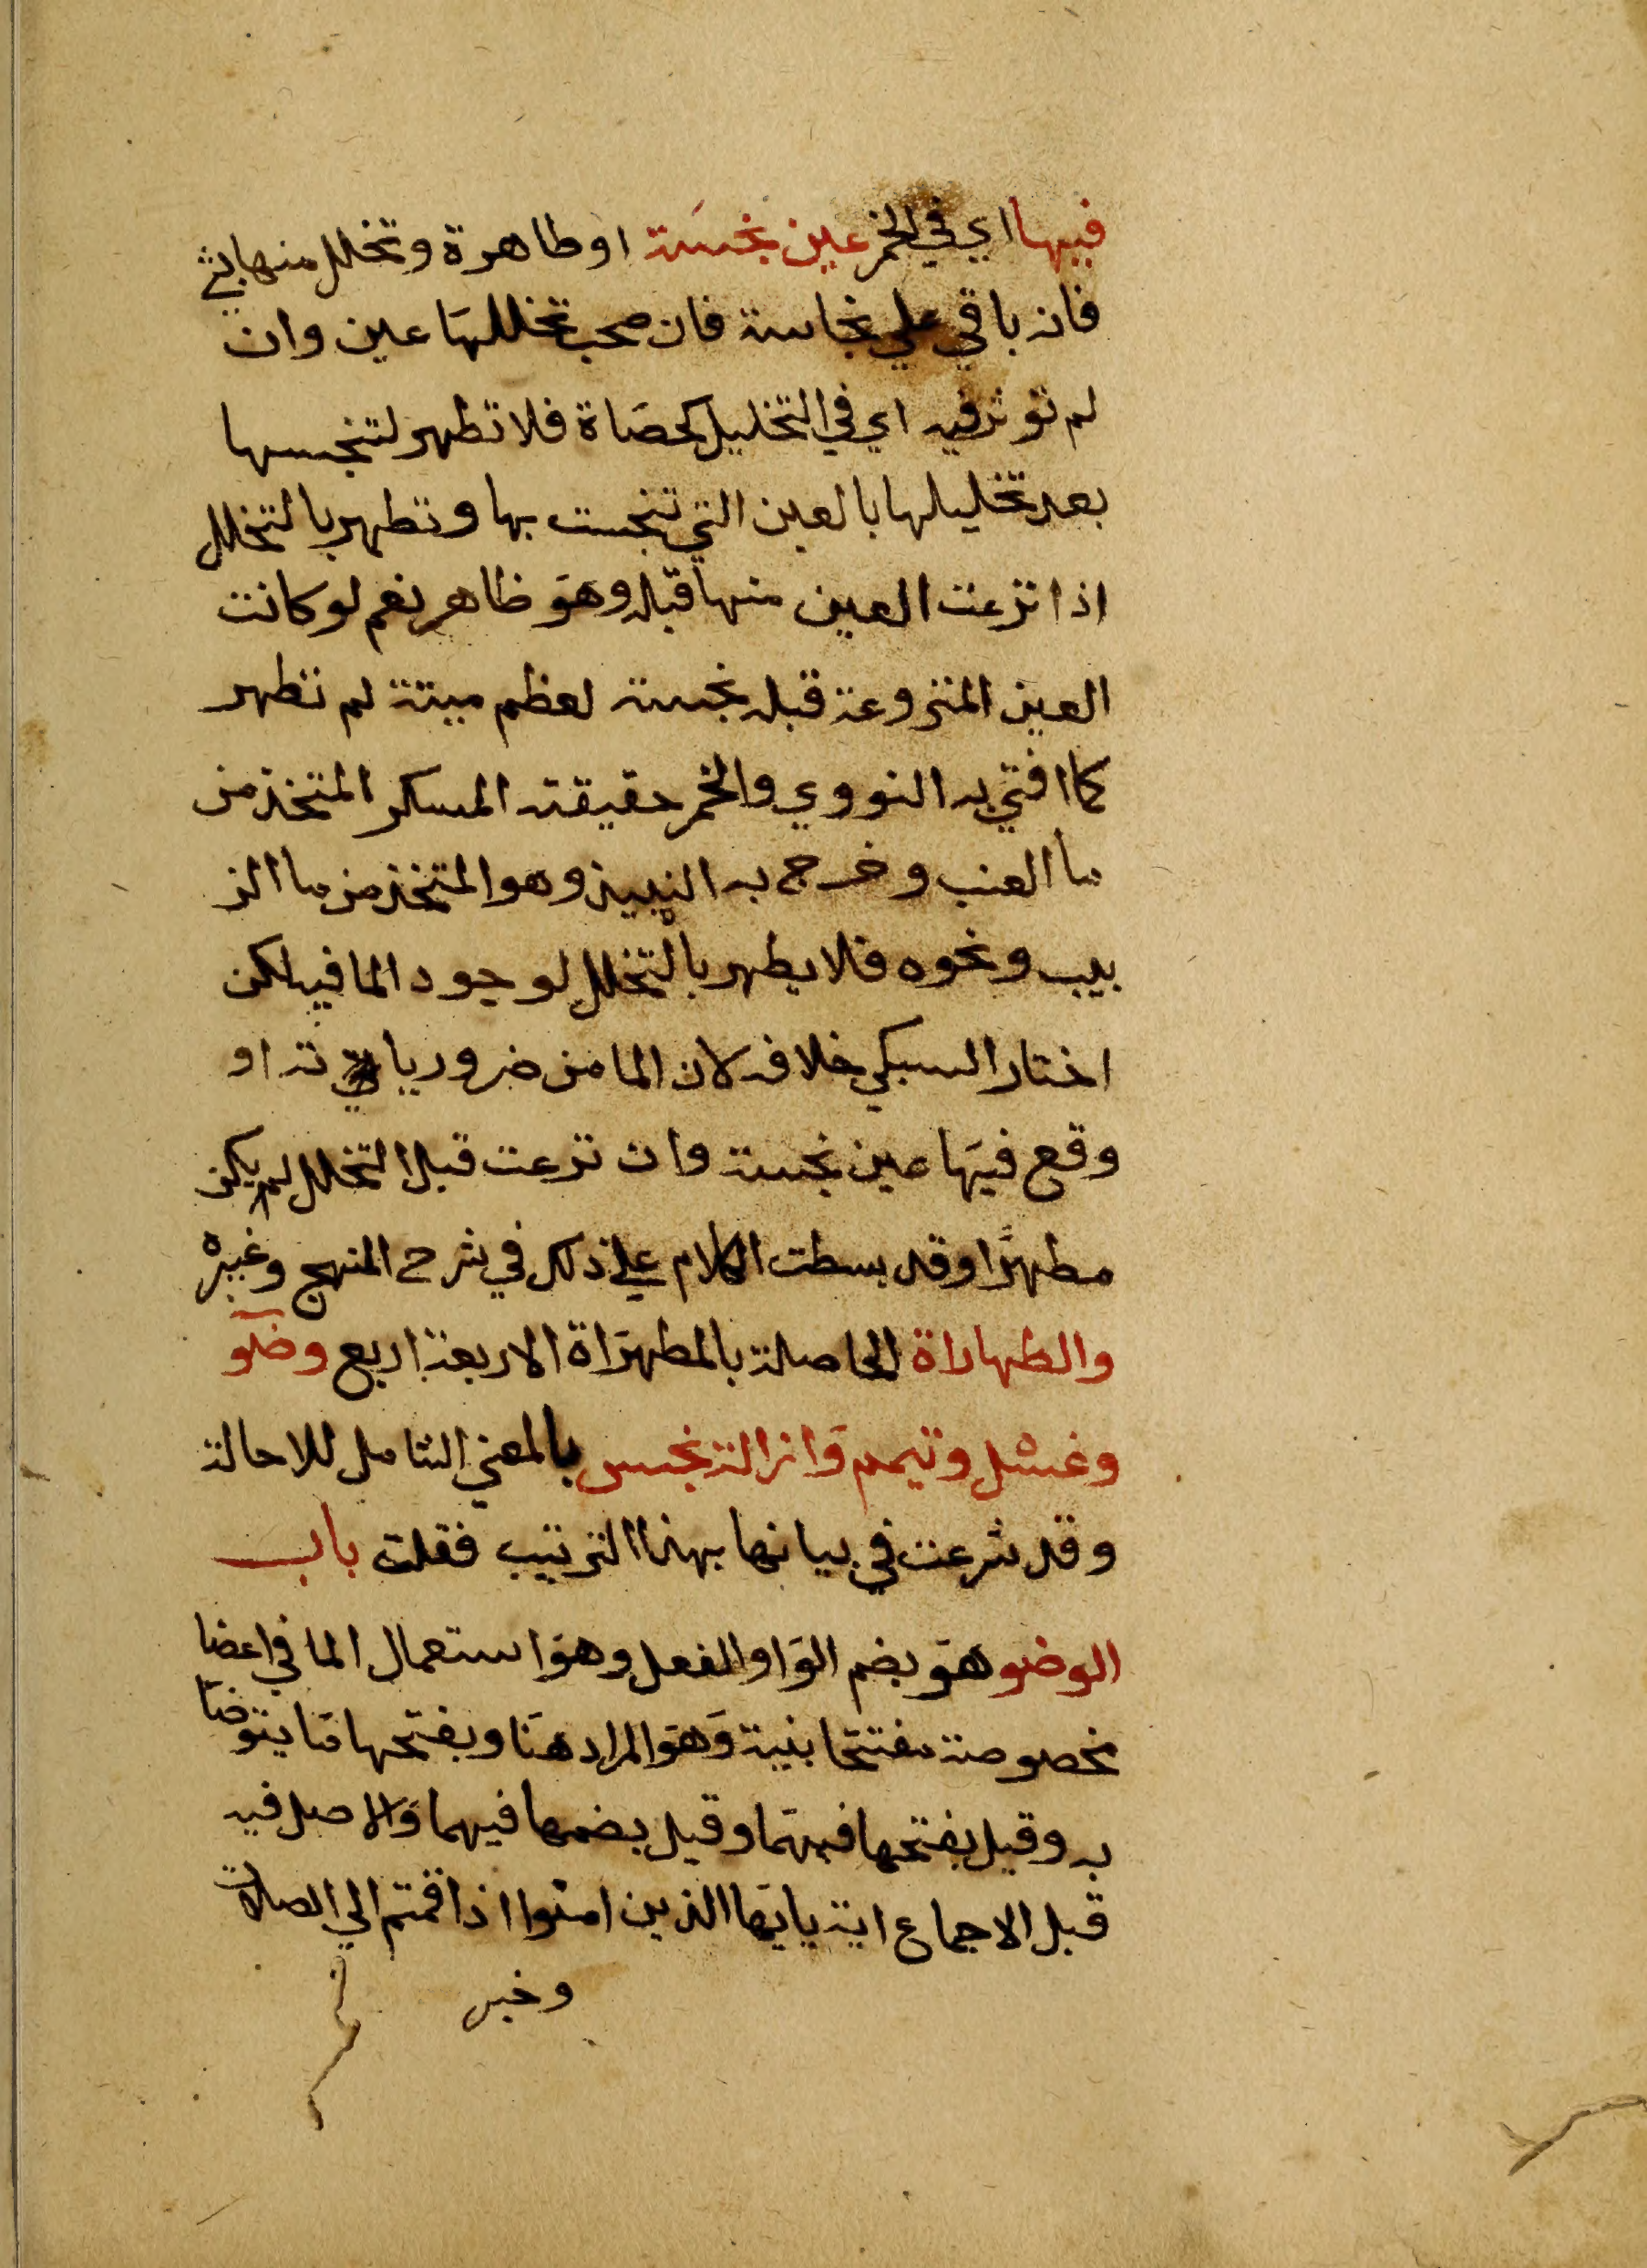 فيها اي في الخمر عين نجسة او طاهرة وتخلل منها شي
فانه باقي علي نجاسته فان صحب تخللها عين وان
لم توثر فيه اي في التخليل كحصاة فلا تطهر لتنجسها
بعد تخليلها بالعين التي تنجست بها وتطهر بالتخلل
اذا نزعت العين منها قبله وهو ظاهر نعم لو كانت
العين المنزوعة قبله نجسة لعظم ميتة لم تطهر
كما افتي به النووي والخمر حقيقته المسكر المتخذ من
ما العنب وخرج به النبيذ وهو المتخذ من ما الز
بيب ونحوه فلا يطهر بالتخلل لوجود الما فيه لكن
اختار السبكي خلافه لان الما من ضرورياته او
وقع فيها عين نجسة وان نزعت قبل التخلل لم يكن
مطهرا وقد بسطت الكلام علي ذلك في شرح المنهج وغيره
والطهاراة الحاصلة بالمطهراة الاربعة اربع وضو
وغسل وتيمم وازالة نجس بالمعني الشامل للاحالة
وقد شرعت في بيانها بهذا الترتيب فقلت باب
الوضو هو بضم الواو الفعل وهو استعمال الما في اعضا
مخصوصة مفتتحا بنية وهو المراد هنا وبفتحها ما يتوضا
به وقيل بفتحها فيهما وقيل بضمها فيهما والاصل فيه
قبل الاجماع اية يايها الذين امنوا اذا قمتم الي الصلاة
وخبر